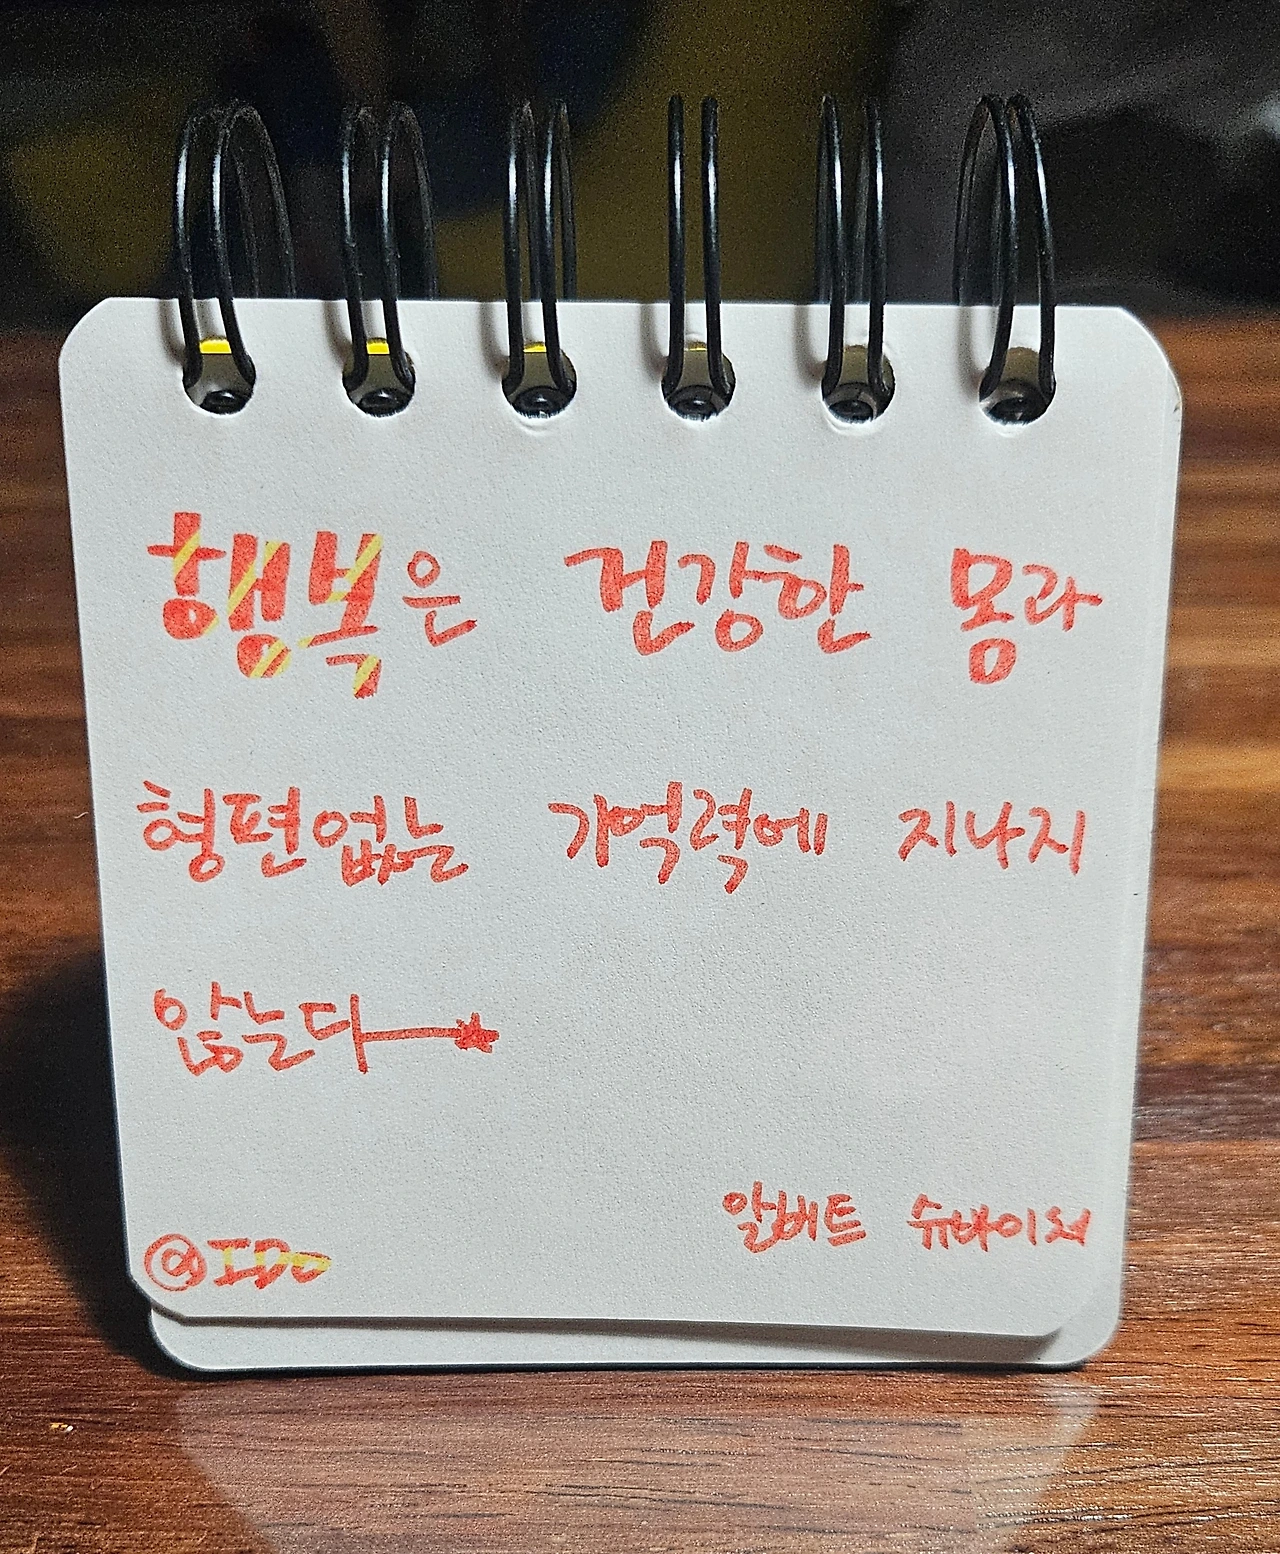 행복은 건강한 몸과
형편없는 기억력에 지나지
않는다
알버트 슈바이쳐
@IDo